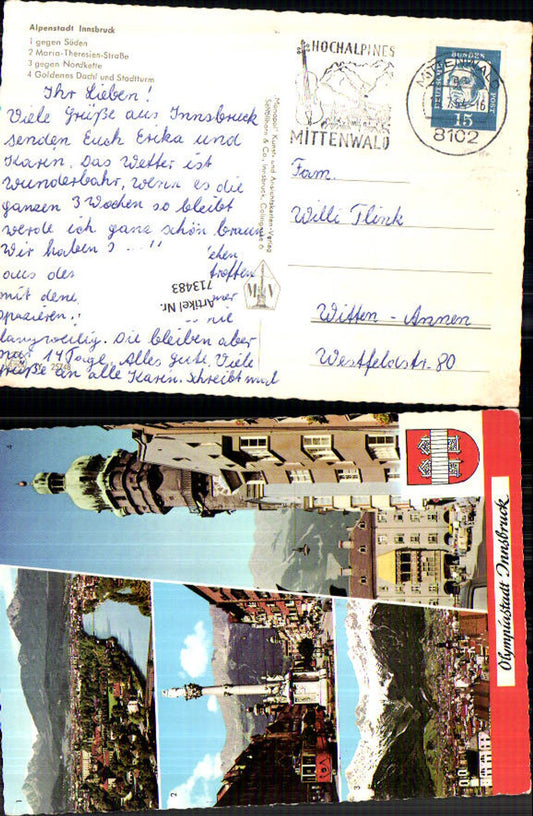 Alpenstadt Innsbruck
1 gegen Süden
2 Maria-Theresien-Straße
3 gegen Nordkette
4 Goldenes Dachl und Stadtturm
Ihr Lieben!
Viele Grüße aus Innsbruck
senden Euch Erika und
Karen. Das Wetter ist
wunderbahr, wenn es die
ganzen 3 Wochen so bleibt
werde ich ganz schön braun
Wir haben
aus der
mit dene
spazieren!
langweilig. Die bleiben aber
nur 14 Tage. Alles gute. Viele
Grüße an alle Karen. Schreibt mal
Artikel Nr.
713483
"Monopol" Kunst- und Ansichtskarten-Verlag
& Co., Innsbruck, Colingasse 6
HOCHALPINES
MITTENWALD
MITTENWALD
8102
DEUTSCHE BUNDESPOST
15
Fam.
Willi Flink
Witten-Annen
Westfeldstr. 80
Olympiastadt Innsbruck
1
2
3
4